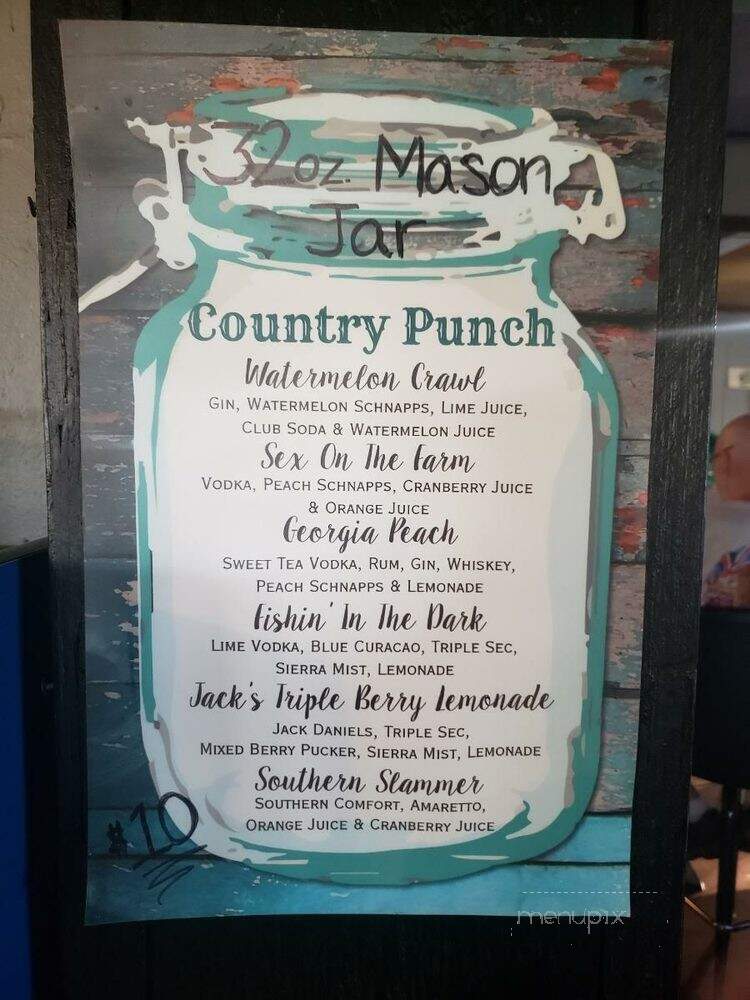 32 oz. Mason
Jar
Country Punch
Watermelon Crawl
Gin, Watermelon Schnapps, Lime Juice,
Club Soda & Watermelon Juice
Sex On The Farm
Vodka, Peach Schnapps, Cranberry Juice
& Orange Juice
Georgia Peach
Sweet Tea Vodka, Rum, Gin, Whiskey,
Peach Schnapps & Lemonade
Fishin' In The Dark
Lime Vodka, Blue Curacao, Triple Sec,
Sierra Mist, Lemonade
Jack's Triple Berry Lemonade
Jack Daniels, Triple Sec,
Mixed Berry Pucker, Sierra Mist, Lemonade
Southern Slammer
Southern Comfort, Amaretto,
Orange Juice & Cranberry Juice
$10
menupix